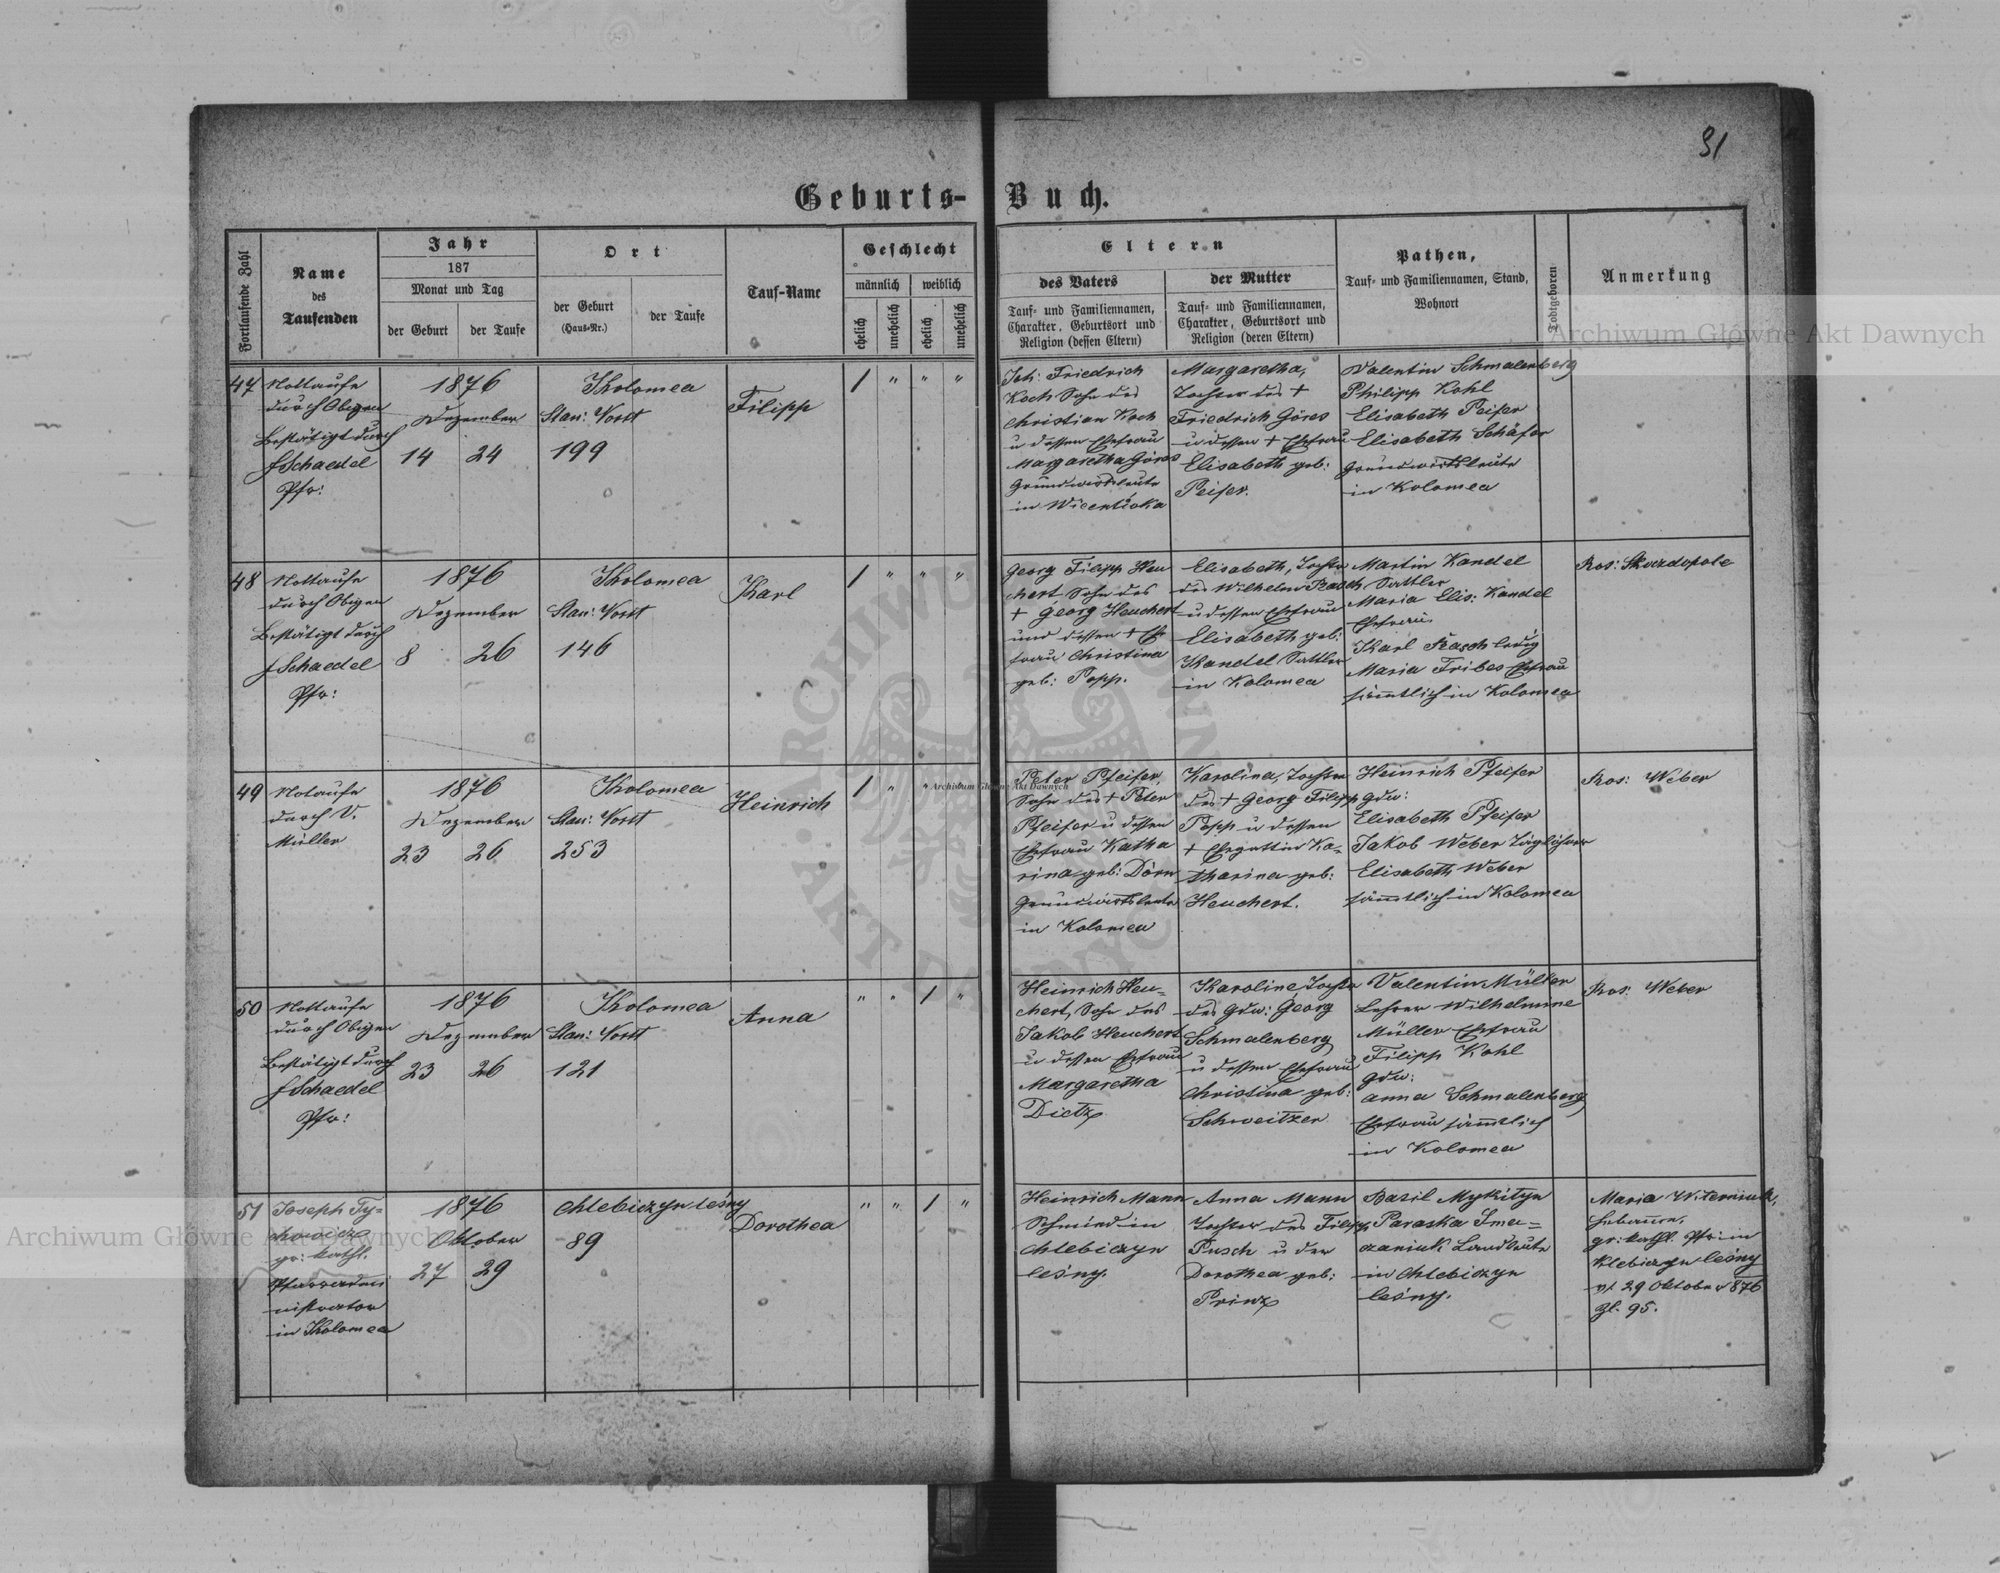 31
Geburts-Buch.
Fortlaufende Zahl
Name
des
Taufenden
Jahr
187
Monat und Tag
der Geburt
der Taufe
Ort
der Geburt
(Haus-Nr.)
der Taufe
Tauf-Name
Geschlecht
männlich
weiblich
ehelich
unehelich
ehelich
unehelich
Eltern
des Vaters
Tauf- und Familiennamen,
Charakter, Geburtsort und
Religion (dessen Eltern)
der Mutter
Tauf- und Familiennamen,
Charakter, Geburtsort und
Religion (deren Eltern)
Pathen,
Tauf- und Familiennamen, Stand,
Wohnort
Todtgeboren
Anmerkung
47
Nottaufe
durch Obigen
Bestätigt durch
Schaedel
Pfr:
1876
Dezember
14
24
Kolomea
Stan: Vorst
199
Filipp
1 " " "
Joh: Friedrich
Koch Sohn des
Christian Koch
u dessen Ehefrau
Margaretha Göres
Grundwirthsleute
in Wicentówka
Margaretha,
Tochter des +
Friedrich Göres
u dessen + Ehefrau
Elisabeth geb:
Peifer.
Valentin Schmalenberg
Philipp Kohl
Elisabeth Peifer
Elisabeth Schäfer
Grundwirthsleute
in Kolomea
48
Nottaufe
durch Obigen
Bestätigt durch
Schaedel
Pfr:
1876
Dezember
8
26
Kolomea
Stan: Vorst
146
Karl
1 " " "
Georg Filipp Heu
chert Sohn des
+ Georg Heuchert
und dessen + Eh
frau Christina
geb: Popp.
Elisabeth, Tochter
des Wilhelm Rasch
u dessen Ehefrau
Elisabeth geb:
Kandel Sattler
in Kolomea
Martin Kandel
Sattler
Maria Elis: Kandel
Ehefrau
Karl Rasch ledig
Maria Tribes Ehefrau
sämmtlich in Kolomea
Ros: Skurdopole
49
Notaufe
durch V.
Müller
1876
Dezember
23
26
Kolomea
Stan: Vorst
253
Heinrich
1 " "
Peter Pfeifer,
Sohn des + Peter
Pfeifer u dessen
Ehefrau Katha
rina geb: Dörn
Grundwirthsleute
in Kolomea
Karolina, Tochter
des + Georg Filipp
Popp u dessen
+ Ehegattin Ka-
tharina geb:
Heuchert.
Heinrich Pfeifer
Gdw:
Elisabeth Pfeifer
Jakob Weber Taglöhner
Elisabeth Weber
sämmtlich in Kolomea
Ros: Weber
50
Nottaufe
durch Obigen
Bestätigt durch
Schaedel
Pfr:
1876
Dezember
23
26
Kolomea
Stan: Vorst
121
Anna
" " 1 "
Heinrich Heu-
chert, Sohn des
Jakob Heuchert
u dessen Ehefrau
Margaretha
Dietz
Karoline Tochter
des Gdw: Georg
Schmalenberg
u dessen Ehefrau
Christina geb:
Schweitzer
Valentin Müller
Lehrer Wilhelmine
Müller Ehefrau
Filipp Kohl
Gdw:
Anna Schmalenberg
Ehefrau sämmtlich
in Kolomea
Ros: Weber
51
Joseph Ty-
chowicz
gr: kathl.
Pfarradmi
nistrator
in Kolomea
1876
Oktober
27
29
Chlebiczyn leśny
89
Dorothea
" " 1 "
Heinrich Mann
Schmied in
Chlebiczyn
leśny.
Anna Mann
Tochter des Filipp
Pusch u der
Dorothea geb:
Prinz
Bazil Mykityn
Paraska Sma-
zaniuk Landleute
in Chlebiczyn
leśny.
Maria Witerniuk,
Hebamme,
gr: kathl. Pfr: in
Klebiczyn leśny
v/ 29 Oktober 876
Zl. 95.
Archiwum Główne Akt Dawnych
Archiwum Główne Akt Dawnych
Archiwum Główne Akt Dawnych